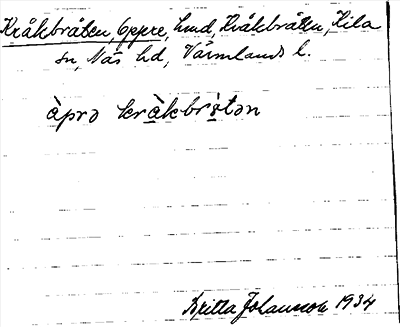 Kråkbråten, Öppre, hmd, Kråkbråten, Kila
sn, Näs hd, Värmlands l.
àprə kràkbrɔ̀tən
Britta Johansson 1934